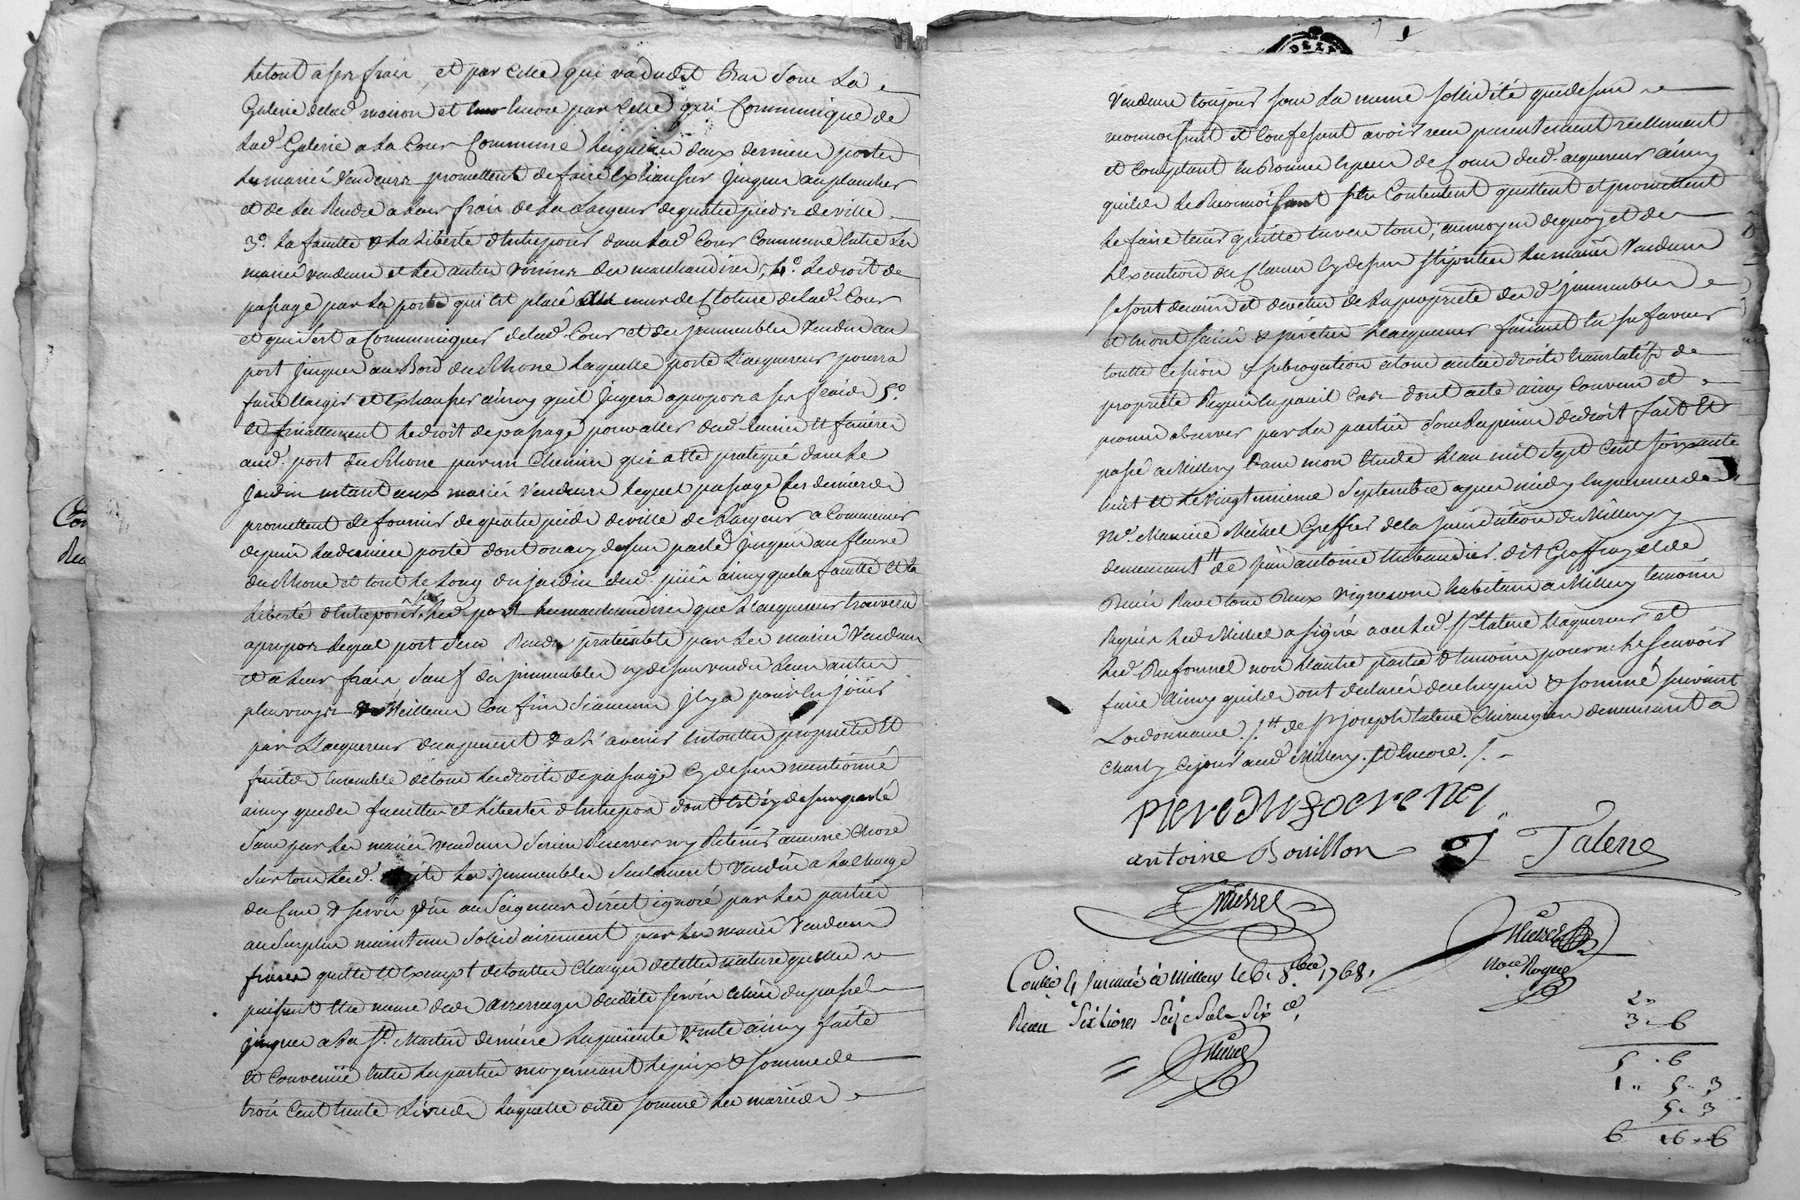 letout a ses frais et par celle qui va dud.t Bas sous la
Galerie delad. maison et encore par celle qui Communique de
lad. Galerie a la Cour Commune lesquelles deux dernieres portes
les mariés Vendeurs promettent de faire exhausser jusques au plancher
et de les Rendre a leurs frais de la Largeur de quatre pieds de ville
3.o la faculté & la Liberté d'Entreposer dans lad. Cour Commune Entre les
mariés vendeurs et led autres Voisins des marchandises, 4.o le droit de
passage par la porte qui est placé au mur de Cloture de lad. Cour
et qui sert a Communiquer delad. Cour et des jmmeubles Vendus au
port jusques au Bord du Rhone laquelle porte L'acquereur pourra
faire Elargir et Exhausser ainsy quil jugera apropos a ses frais 5.o
et finallement le droit de passage pour aller dud.
aud. port du Rhone par un Chemin qui a été pratiqué dans le
jardin restant aux mariés Vendeurs lequel passage ces derniers
promettent de fournir de quatre pieds de ville de Largeur a Commencer
depuis la derniere porte dont on a cy dessus parlé jusques au fleuve
du Rhone et tout le Long du jardin dud. ainsy que la faculté et la
Liberté d'Entreposer sur led. port les marchandises que L'acquereur trouvera
apropos lequel port sera Rendu pratiquable par les mariés Vendeurs
et a leurs frais sauf des jmmeubles cy dessus vendus leurs autres
plus vrays & Meilleurs Confins si aucuns jl y a pour en jouir
par L'acquereur des apresent & a L'avenir en toutte proprieté et
fruits Ensemble de tous les droits de passage cy dessus mentionné
ainsy que des facultés et libertés d'Entreposer dont est cy dessus parlé
sans par les mariés Vendeurs s'en Reserver ny Retenir aucune Chose
sur tout led. les jmmeubles seulement Vendus a la Charge
du Cens & servis dus au Seigneur direct ignoré par les parties
au surplus maintenus solidairement par les mariés Vendeurs
francs quitte et Exempt de touttes Charges de telles nature quelles
puissent etre meme des arrerages desdits servis Echus du passé
jusques a la St. Martin derniere la presente Vente ainsy faite
et Convenüe Entre les parties moyennant le prix & somme de
trois Cent trente Livres laquelle ditte somme les mariés
Vendeurs toujours sous la meme sollidité que dessus
reconnoissent et Confessent avoir recu presentement reellement
et Comptant en Bonnes Especes de Cours dud. acquereur ainsy
quils le Reconnoissent s'en Contentent quittent et promettent
le faire tenir quitte envers tous, au moyen dequoy et de
L'Execution des Clauses cy dessus stipulées les mariés Vendeurs
se sont demis et devetus de la proprieté des d. jmmeubles
et en ont saisi & jnvestu L'acquereur faisant en sa faveur
toutte Cession & subrogation & tous autres droits translatifs de
proprieté Requis en pareil Cas dont acte ainsy Convenu et
promis observer par les parties sous les peines de droit fait et
passé a Millery dans mon Etude L'an mil sept Cent soixante
huit et le vingtneuvieme Septembre apres midy en presence de
M.e Maurice Michel Greffier de la jurisdiction de Millery y
demeurant et de sieur antoine dit Geoffray et de
Vignerons habitans a Millery temoins
Requis led. Michel a signé avec led. s.r talene L'acquereur et
led. Dufournel non L'autre partie & temoins pour ne le scavoir
faire ainsy quils ont declaré de ce Enquis & sommé suivant
L'ordonnance /. et de s.r joseph talene Chirurgien demeurant a
Charly ce jour aud. Millery. et Encore /. -
Piere Dufocrenel
antoine Bouillon
J Talene
Michel
Thierret
No.re Royal
Con.lé & Jnsinué à Millery le 6. 8.bre 1768.
Recu Six livres Seize Sols Six d.
Thierret
2 "
3 - 6
5 - 6
1 " 5 - 3
5 - 3
6 16 - 6